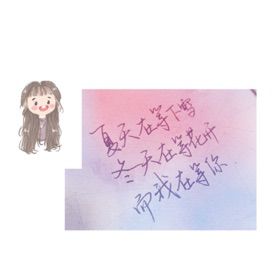 夏天在等下雪
冬天在等花开
而我在等你